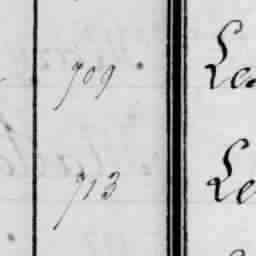 709 Le
713 Le